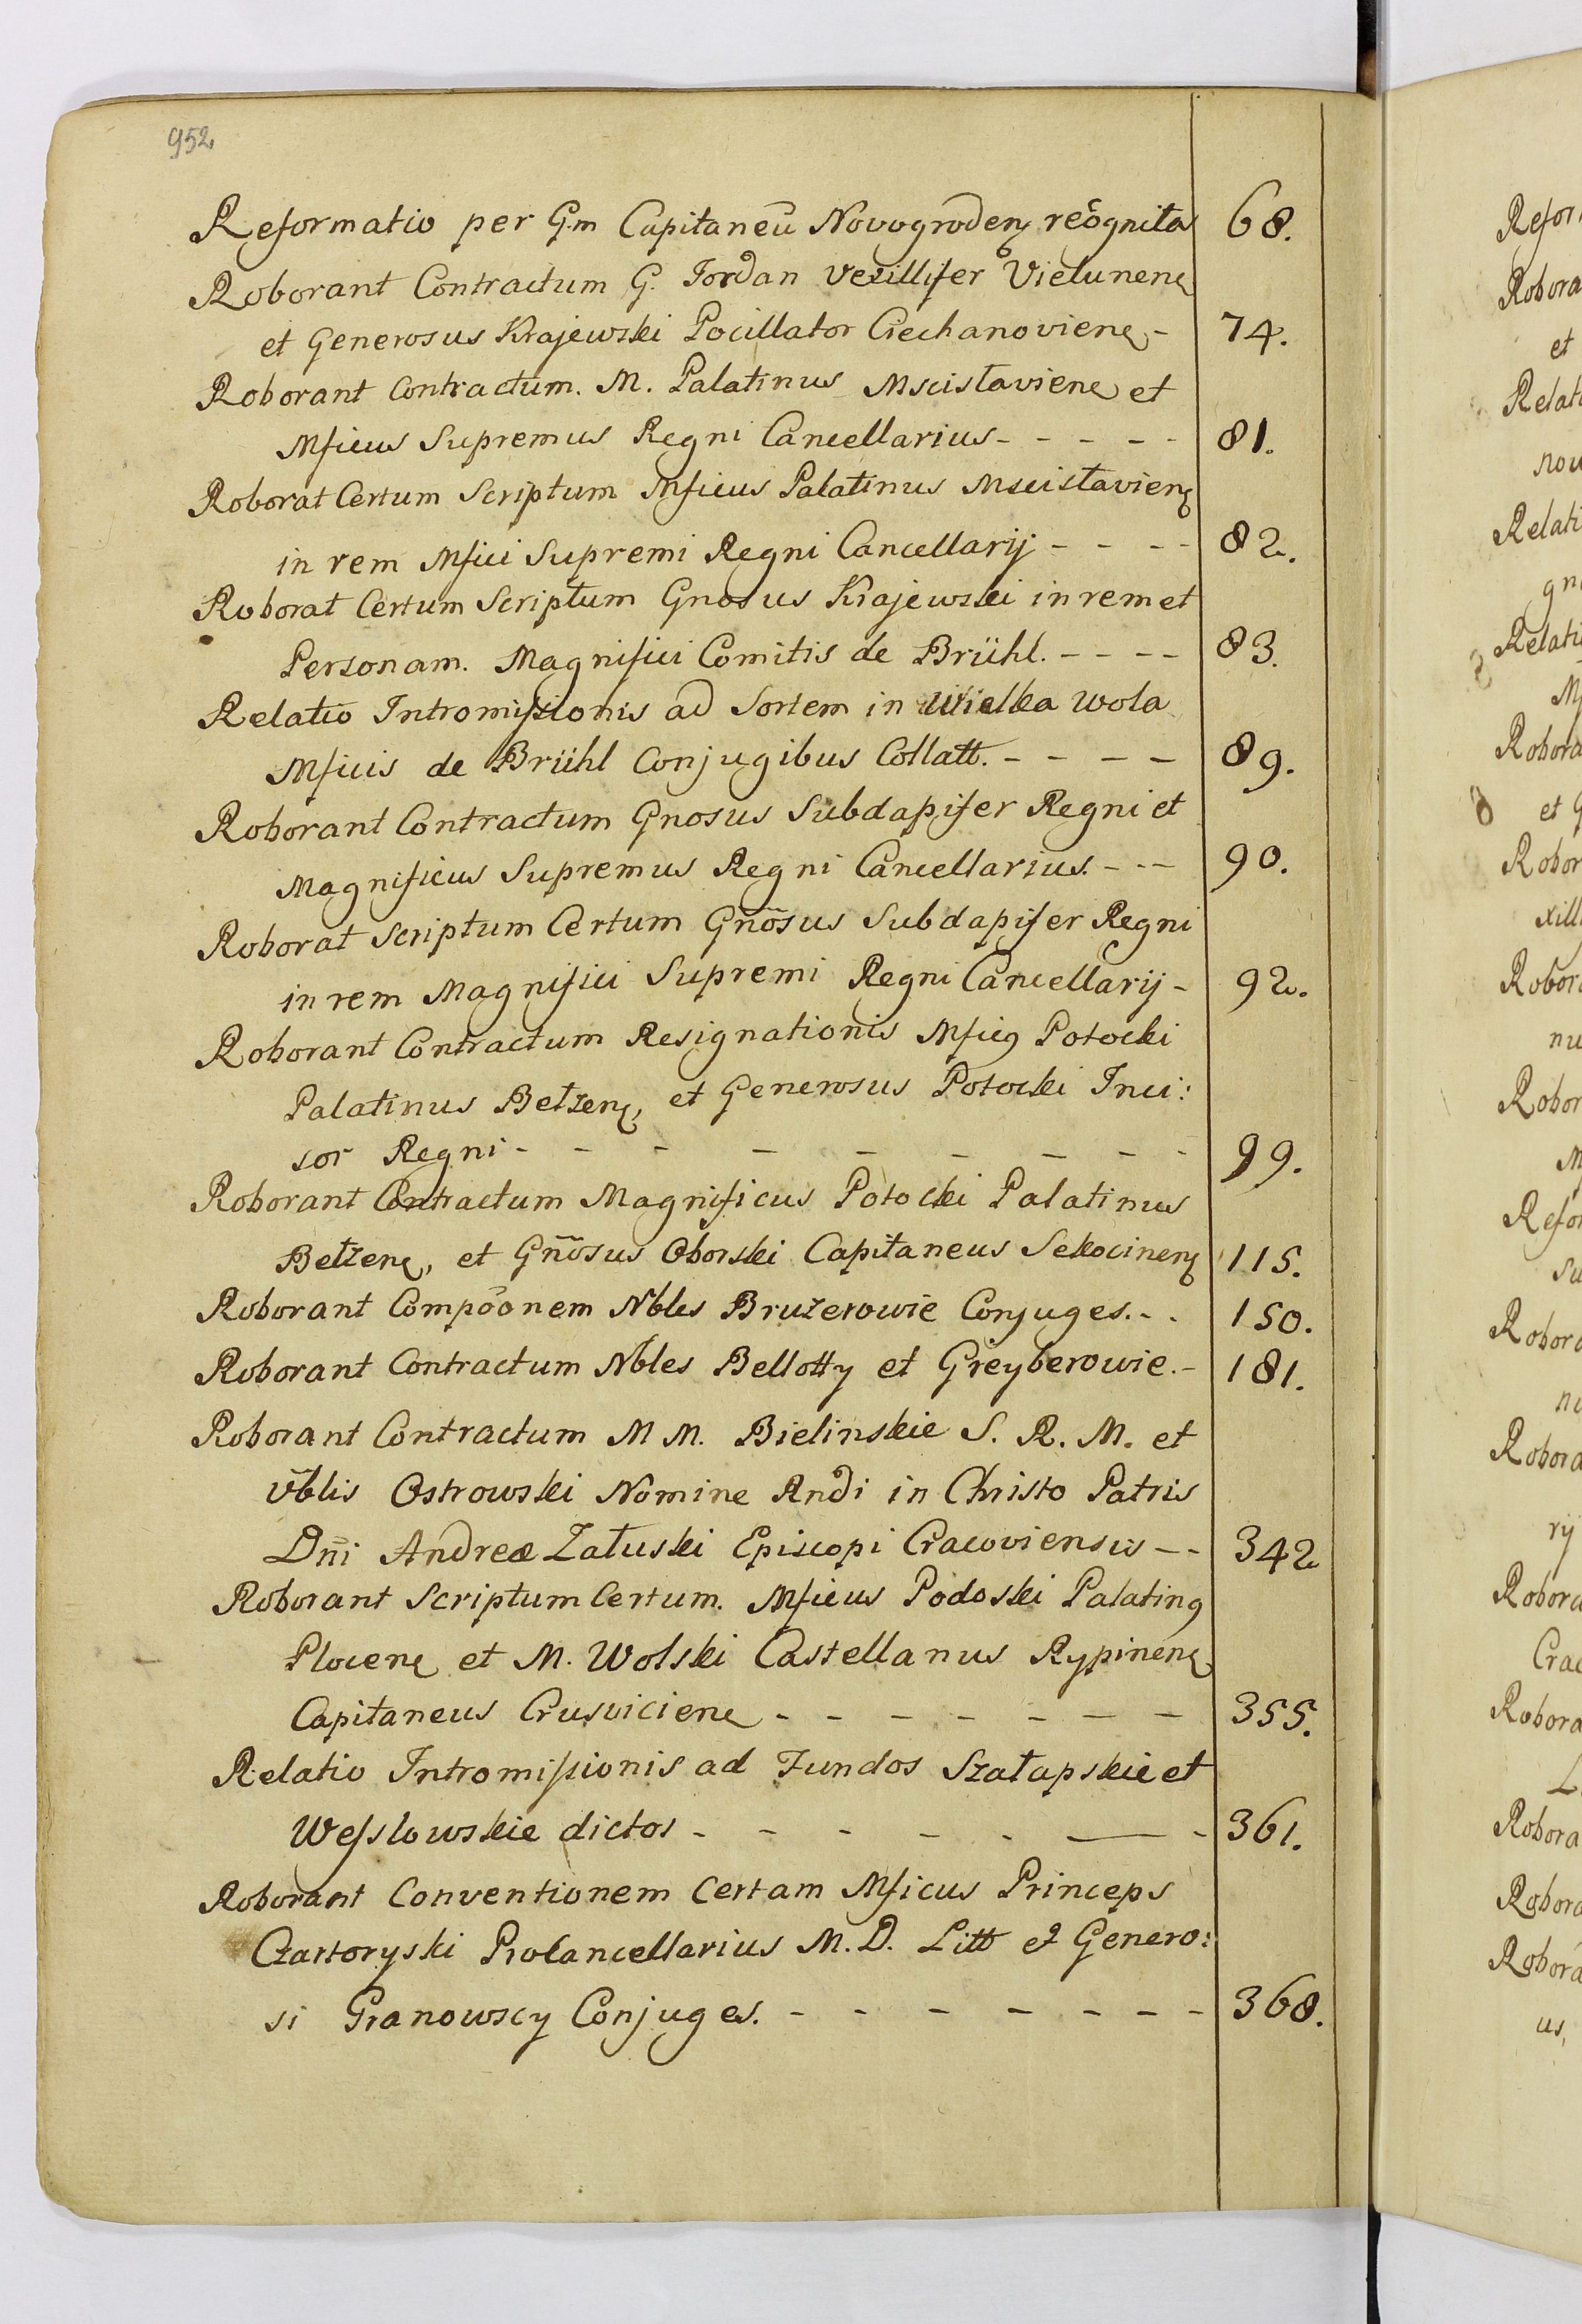 952
Reformatio per Gm Capitaneū Novogrodens recōgnita 68.
Roborant Contractum G. Jordan Vexillifer Vielunens
et Generosus Krajewski Pocillator Ciechanoviens - 74.
Roborant Contractum. M. Palatinus Mscisłaviens et
Mficus Supremus Regni Cancellarius - - - - - 81.
Roborat Certum Scriptum Mficus Palatinus Mscisłaviens
in rem Mfici Supremi Regni Cancellarij - - - - 82.
Roborat Certum Scriptum Gnosus Krajewski in rem et
Personam. Magnifici Comitis de Brühl. - - - - 83.
Relatio Intromissionis ad Sortem in Wielka Wola
Mficis de Brühl Conjugibus Collatt. - - - - 89.
Roborant Contractum Gnosus Subdapifer Regni et
Magnificus Supremus Regni Cancellarius. - - - 90.
Roborat Scriptum Certum Gnōsus Subdapifer Regni
in rem Magnifici Supremi Regni Cancellarij - 92.
Roborant Contractum Resignationis Mficus Potocki
Palatinus Bełzens, et Generosus Potocki Inci:
sor Regni - - - - - - - - - 99.
Roborant Contractum Magnificus Potocki Palatinus
Bełzens, et Gnōsus Oborski Capitaneus Sekocinens 115.
Roborant Compōonem Nbles Bruzerowie Conjuges. - - 150.
Roborant Contractum Nbles Bellotty et Greyberowie. - 181.
Roborant Contractum M M. Bielinskie S. R. M. et
Vblis Ostrowski Nomine Rndi in Christo Patris
Dn̄i Andreæ Załuski Episcopi Cracoviensis - - 342
Roborant Scriptum Certum. Mficus Podoski Palatinus
Plocens et M. Wolski Castellanus Rypinens
Capitaneus Crusviciens - - - - - - - 355.
Relatio Intromissionis ad Fundos Szałapskie et
Wesslowskie dictos - - - - - - - 361.
Roborant Conventionem Certam Mficus Princeps
Czartoryski Procancellarius M. D. Litt et Genero:
si Granowscy Conjuges. - - - - - - - 368.